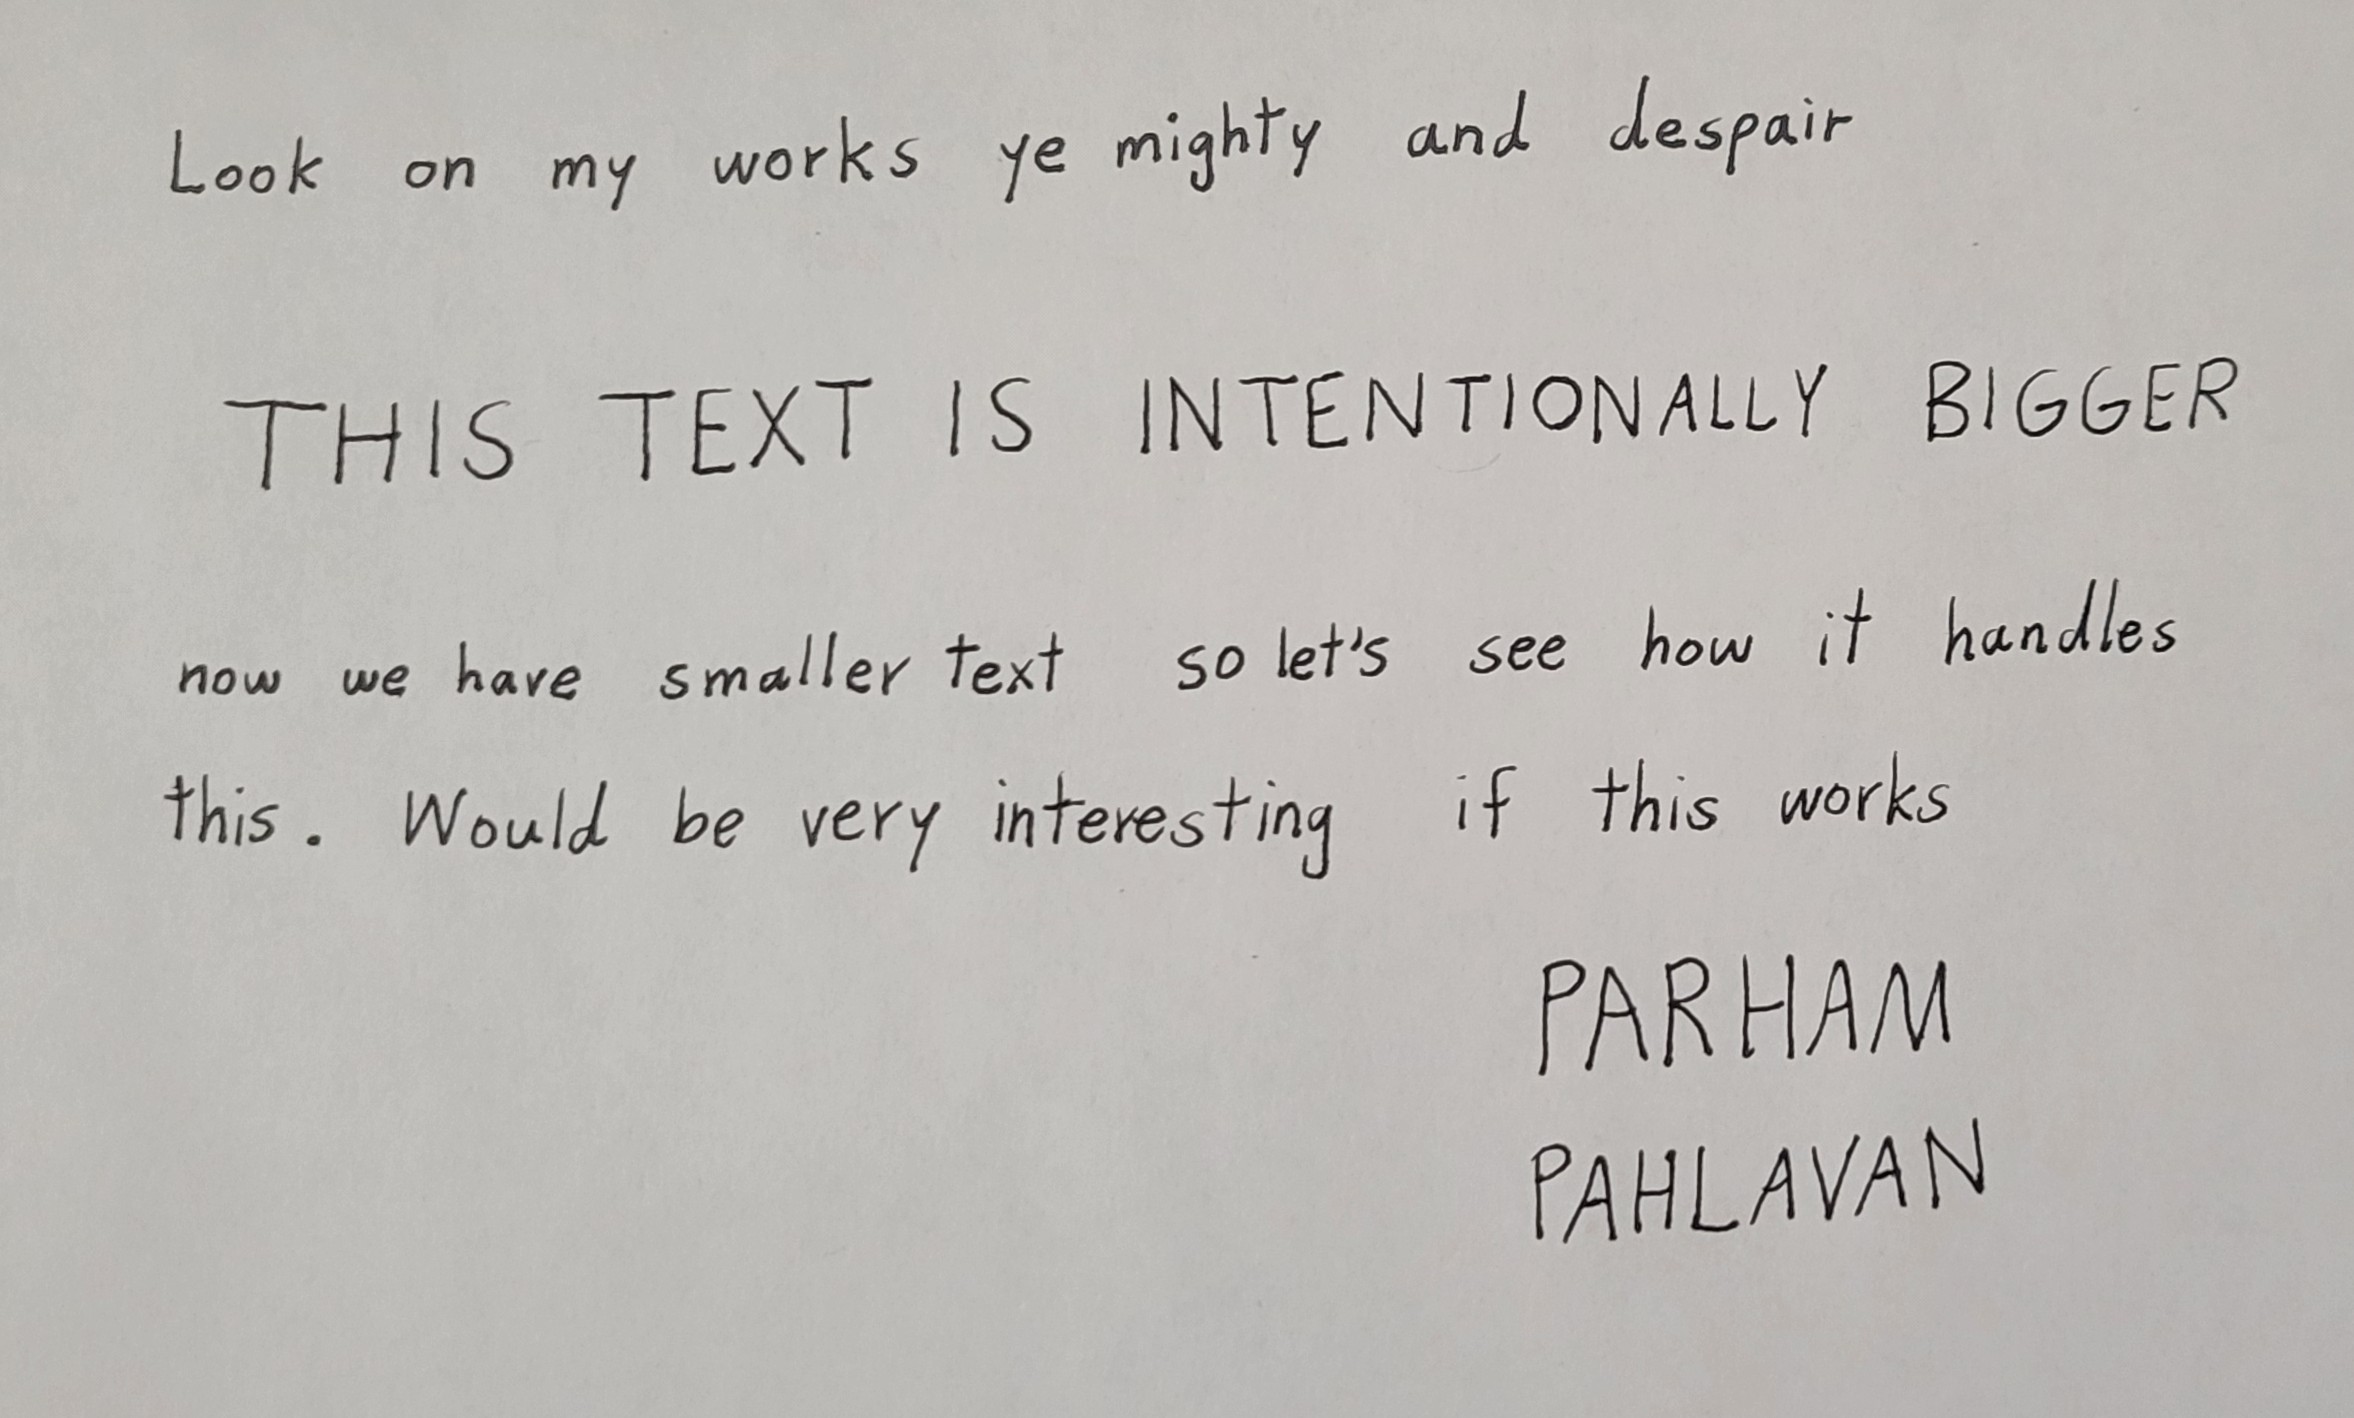 Look on my works ye mighty and despair
THIS TEXT IS INTENTIONALLY BIGGER
now we have smaller text so let's see how it handles
this. Would be very interesting if this works
PARHAM
PAHLAVAN